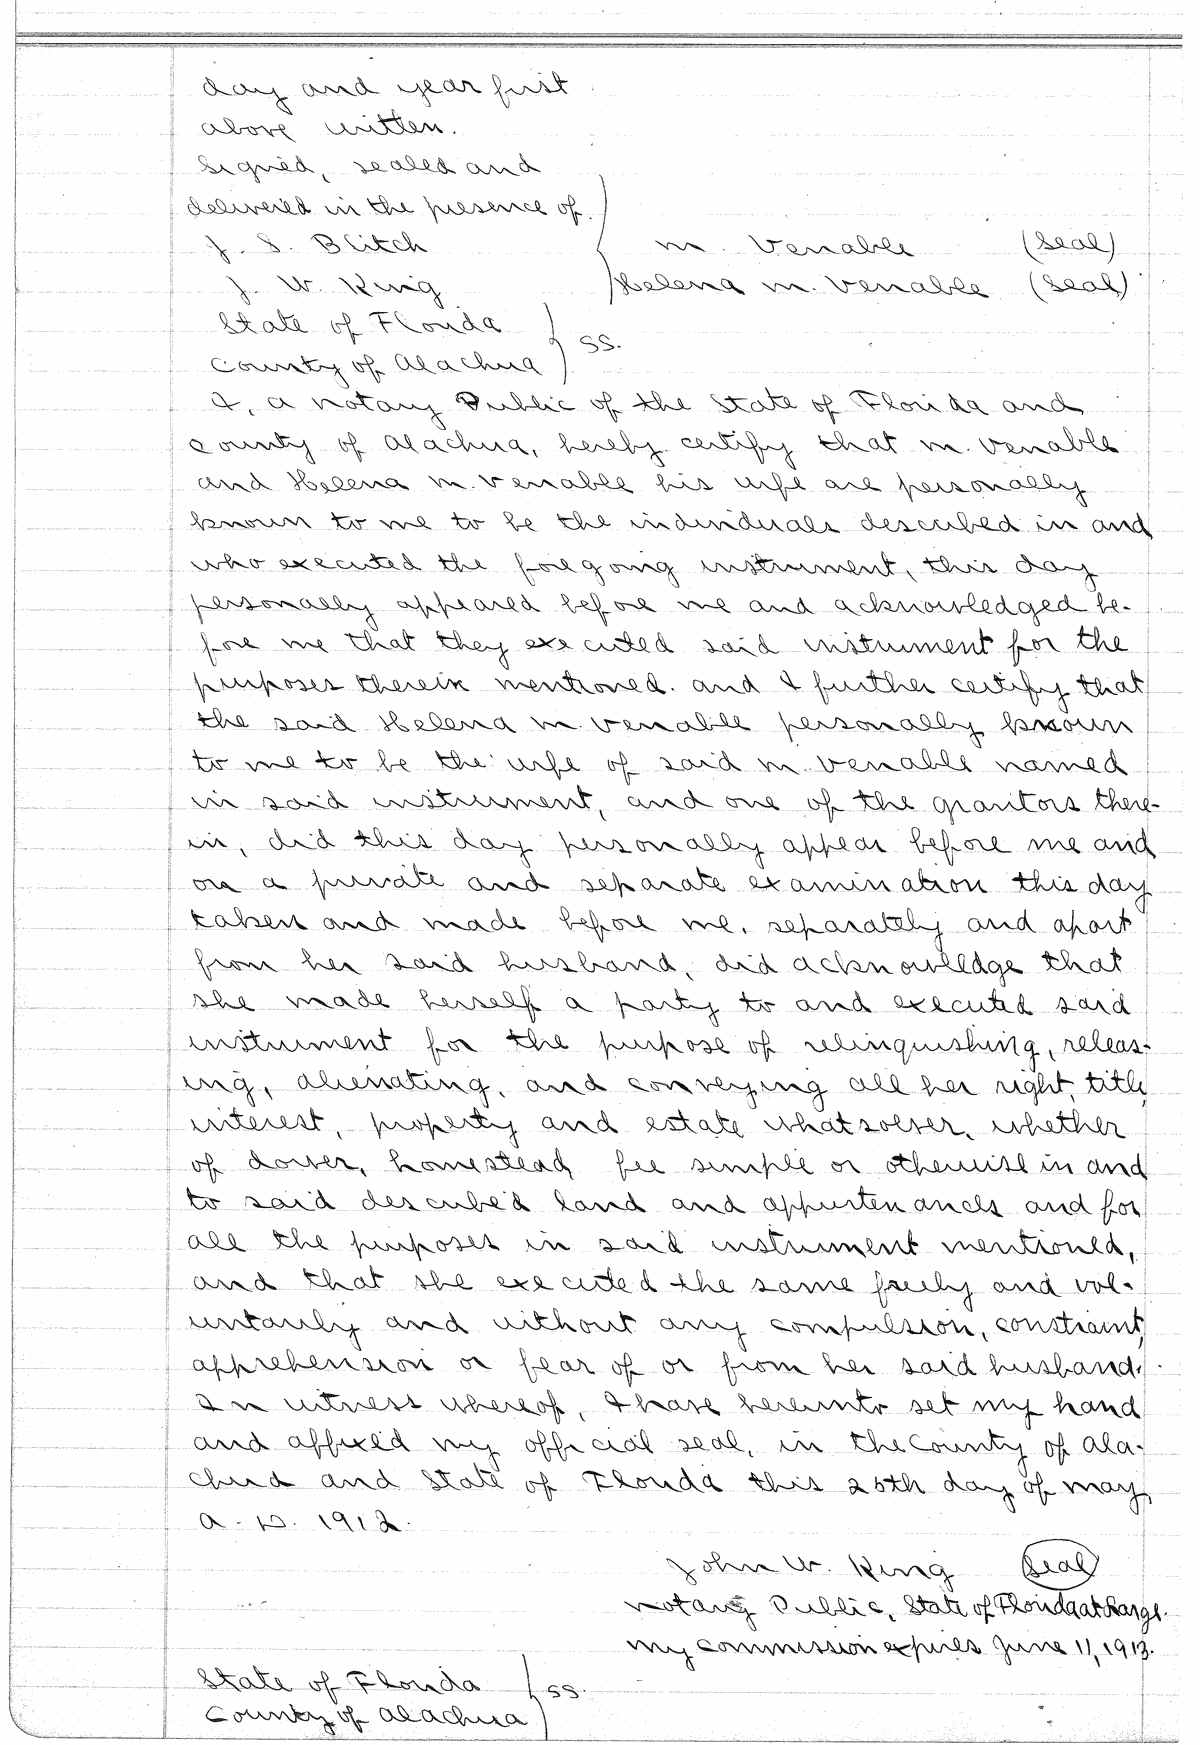 day and year first
above written.
Signed, sealed and
delivered in the presence of.
J. S. Blitch M. Venable (Seal)
J. W. King Helena M. Venable (Seal)
State of Florida
County of Alachua ss.
I, a Notary Public of the State of Florida and
County of Alachua, hereby certify that M. Venable
and Helena M. Venable his wife are personally
known to me to be the individuals described in and
who executed the foregoing instrument, this day
personally appeared before me and acknowledged be-
fore me that they executed said instrument for the
purposes therein mentioned. and I further certify that
the said Helena M. Venable personally known
to me to be the wife of said M. Venable named
in said instrument, and one of the grantors there-
in, did this day personally appear before me and
on a private and separate examination this day
taken and made before me, separately and apart
from her said husband, did acknowledge that
she made herself a party to and executed said
instrument for the purpose of relinquishing, releas-
ing, alienating, and conveying all her right, title,
interest, property and estate whatsoever, whether
of dower, homestead, fee simple or otherwise in and
to said described land and appurtenances and for
all the purposes in said instrument mentioned,
and that she executed the same freely and vol-
untarily and without any compulsion, constraint,
apprehension or fear of or from her said husband.
In witness whereof, I have hereunto set my hand
and affixed my official seal, in the County of Ala-
chua and State of Florida this day of May,
A. D. 1912.
John W. King Seal
Notary Public, State of Florida at Large.
My commission expires June 11, 1913.
State of Florida
County of Alachua ss.